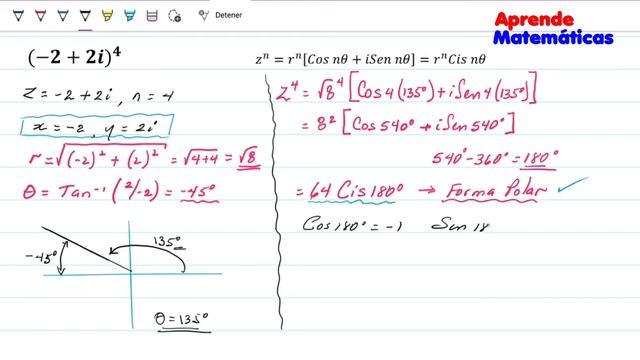 Detener
Aprende
Matemáticas
(-2 + 2i)⁴
zⁿ = rⁿ[Cos nθ + iSen nθ] = rⁿCis nθ
Z = -2 + 2i , n = 4
x = -2 , y = 2i
r = √((-2)² + (2)²) = √(4+4) = √8
θ = Tan⁻¹ (2/-2) = -45°
-45°
135°
θ = 135°
Z⁴ = √8⁴ [Cos 4(135°) + i Sen 4(135°)]
= 8² [Cos 540° + i Sen 540°]
540° - 360° = 180°
= 64 Cis 180° → Forma Polar ✓
Cos 180° = -1 Sen 18